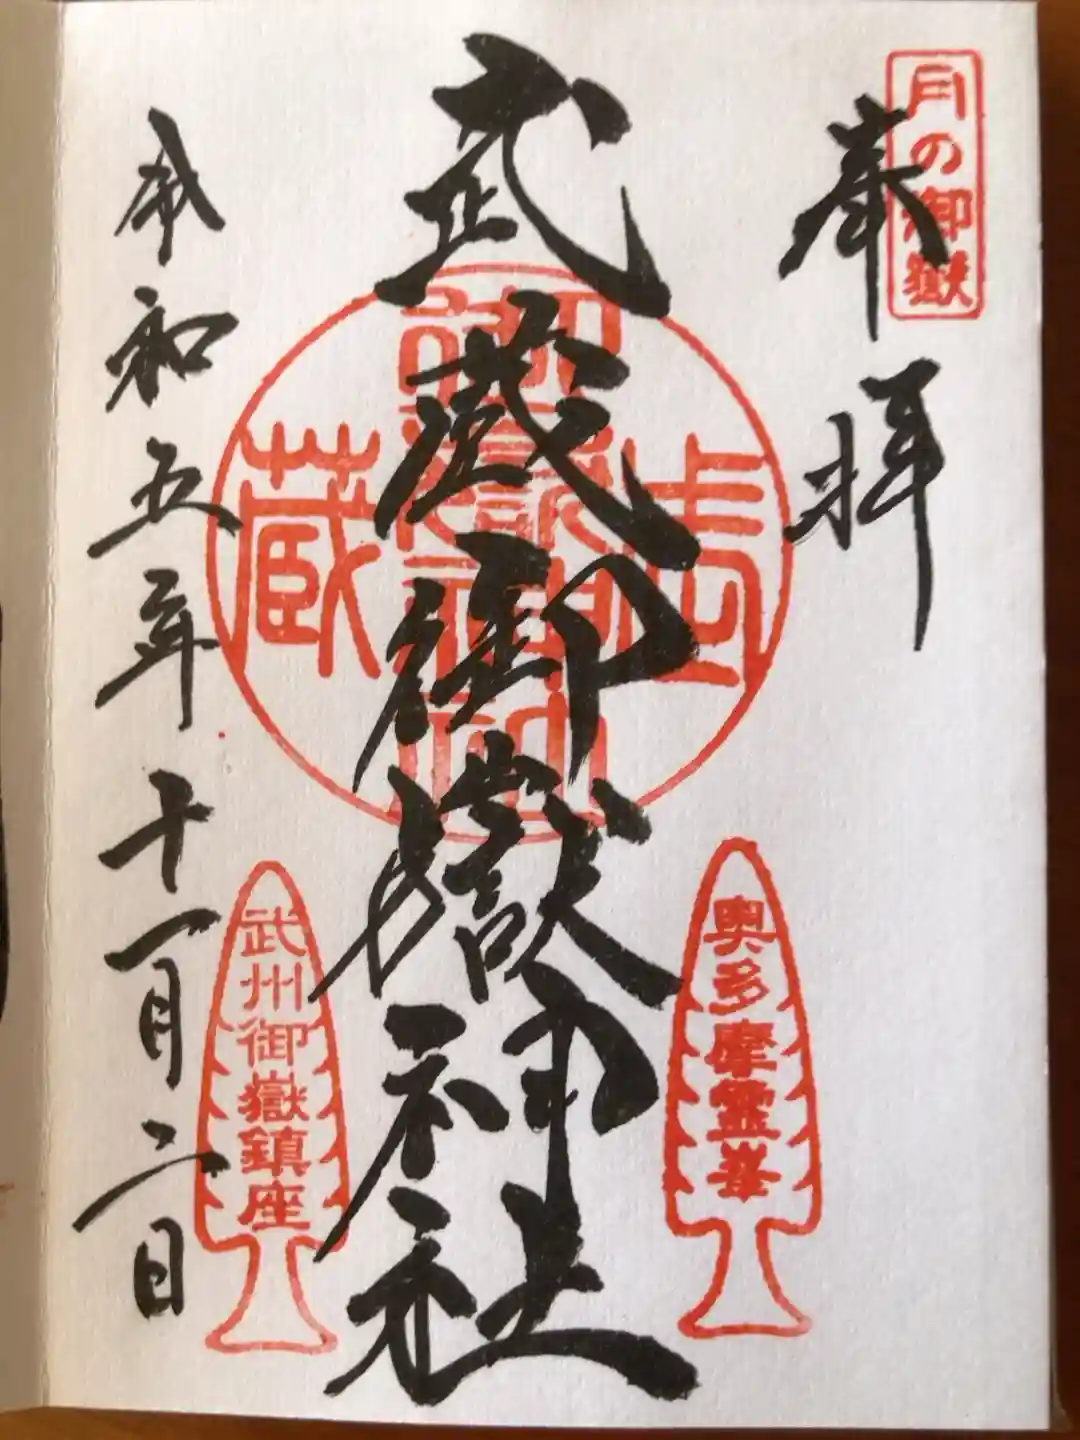 月の御嶽
奉拝
武蔵御嶽神社
武蔵
御嶽神社
奥多摩霊峯
武州御嶽鎮座
令和五年十一月二日